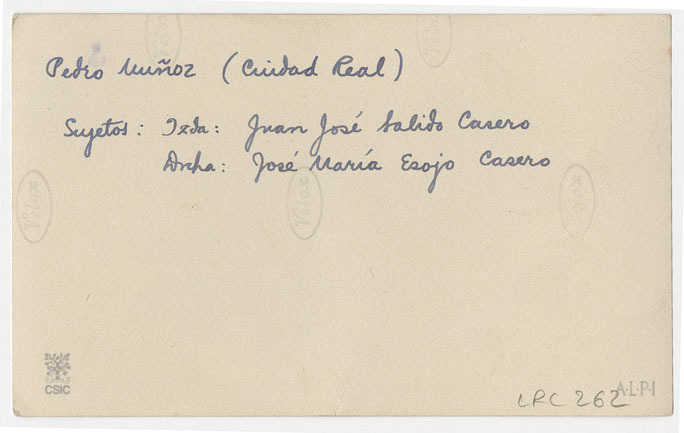 Pedro Muñoz (Ciudad Real)
Sujetos: Izda: Juan José Salido Casero
Drcha: José María Esojo Casero
Velox
Velox
Velox
CSIC
LRC 262
A·L·P·I